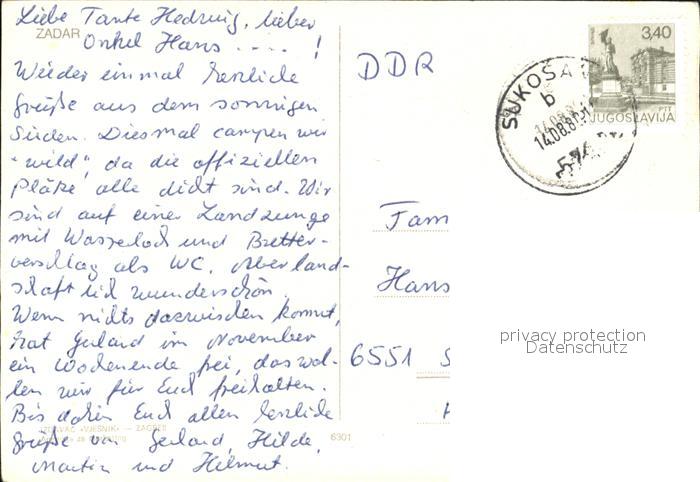 Liebe Tante Hedwig, lieber
ZADAR
Onkel Hans .... !
Wieder einmal herzliche
Grüße aus dem sonnigen
Süden. Diesmal campen wir
"wild", da die offiziellen
Plätze alle dicht sind. Wir
sind auf einer Landzunge
mit Wasserloch und Bretter-
verschlag als WC. Aber land-
schaftlich wunderschön.
Wenn nichts dazwischen kommt,
hat Gerland im November
ein Wochenende frei, das wol-
len wir für Euch freihalten.
Bis dahin Euch allen herzliche
IZDAVAČ »VJESNIK« — ZAGREB
Grüße von Gerland, Hilde,
6301
Martin und Helmut.
DDR
3,40
PTT
JUGOSLAVIJA
SUKOŠA
b
14.08.8
Fam
Hans
6551 S
privacy protection
Datenschutz